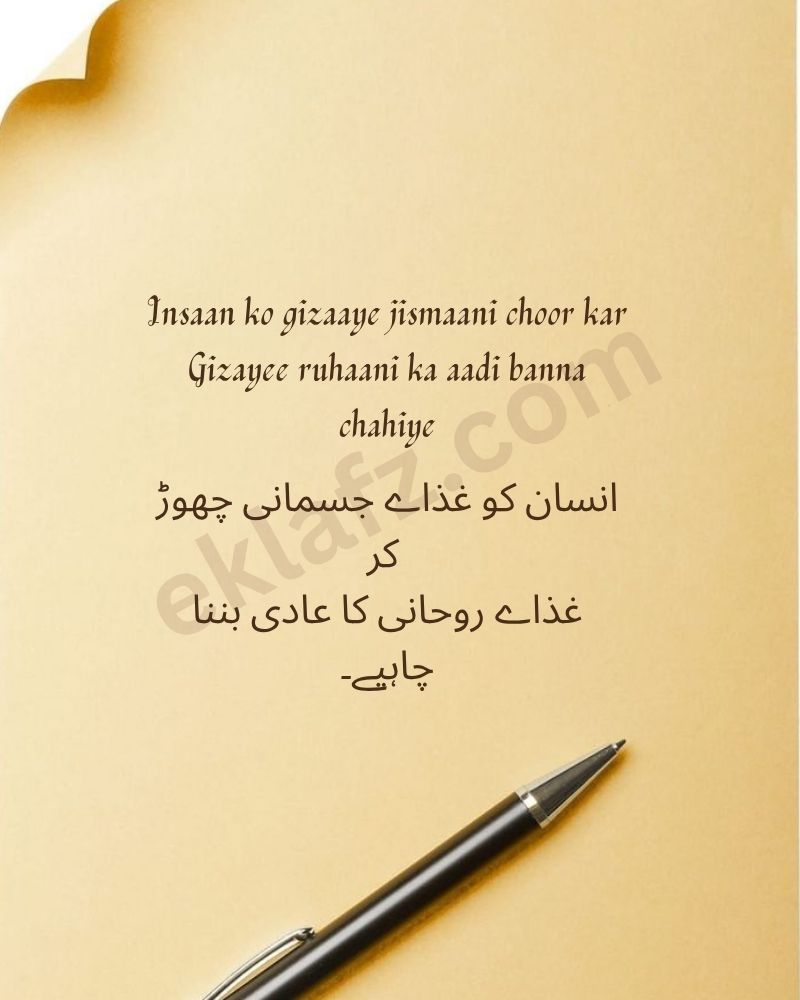 Insaan ko gizaaye jismaani choor kar
Gizayee ruhaani ka aadi banna
chahiye
انسان کو غذاے جسمانی چھوڑ
کر
غذاے روحانی کا عادی بننا
چاہیے۔
eklafz.com